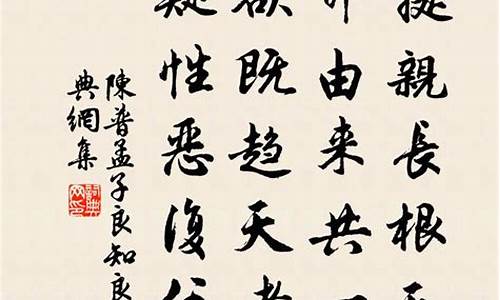 提親長根
由来共
欲既趨天
疑性恶復
陳普孟子良知良
典網集